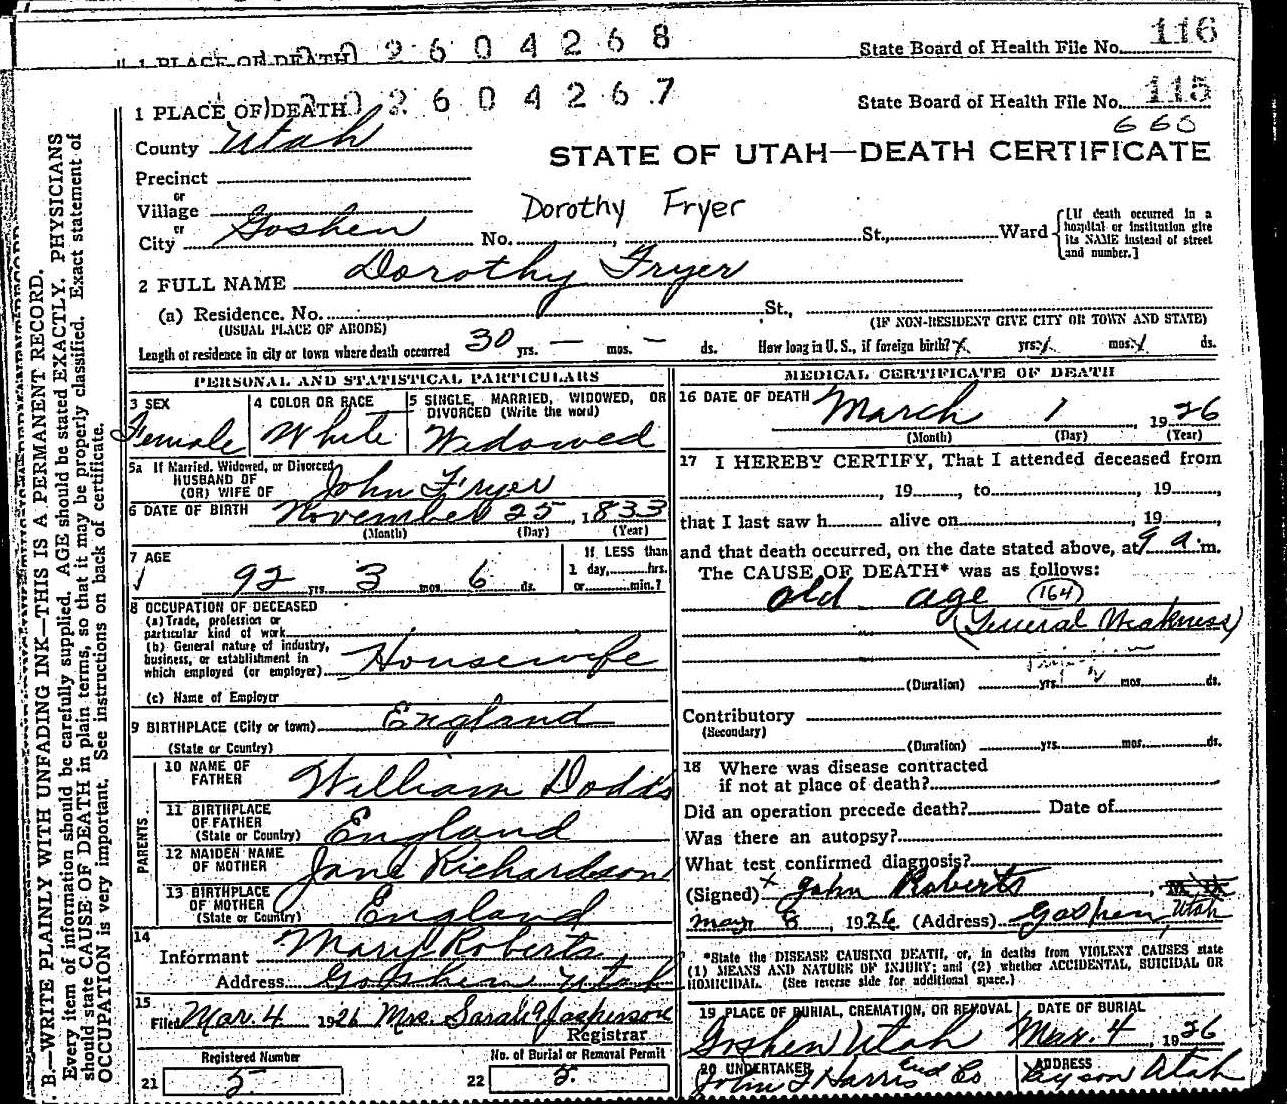 0 2 6 0 4 2 6 8
State Board of Health File No. 116
1 PLACE OF DEATH
0 2 6 0 4 2 6 7
State Board of Health File No. 115
1 PLACE OF DEATH
660
County Utah
STATE OF UTAH—DEATH CERTIFICATE
Precinct
or
Village
Dorothy Fryer
or
City Goshen No. , St., Ward
[If death occurred in a
hospital or institution give
its NAME instead of street
and number.]
2 FULL NAME Dorothy Fryer
(a) Residence. No. St.,
(USUAL PLACE OF ABODE) (IF NON-RESIDENT GIVE CITY OR TOWN AND STATE)
Length of residence in city or town where death occurred 30 yrs. — mos. — ds. How long in U. S., if foreign birth? yrs. mos. ds.
PERSONAL AND STATISTICAL PARTICULARS
3 SEX
Female
4 COLOR OR RACE
White
5 SINGLE, MARRIED, WIDOWED, OR
DIVORCED (Write the word)
Widowed
5a If Married, Widowed, or Divorced
HUSBAND OF
(OR) WIFE OF John Fryer
6 DATE OF BIRTH November 25, 1833
(Month) (Day) (Year)
7 AGE
92 yrs. 3 mos. 6 ds.
If LESS than
1 day,......hrs.
or......min.?
8 OCCUPATION OF DECEASED
(a) Trade, profession or
particular kind of work
(b) General nature of industry,
business, or establishment in
which employed (or employer) Housewife
(c) Name of Employer
9 BIRTHPLACE (City or town) England
(State or Country)
PARENTS
10 NAME OF
FATHER William Dodds
11 BIRTHPLACE
OF FATHER
(State or Country) England
12 MAIDEN NAME
OF MOTHER Jane Richardson
13 BIRTHPLACE
OF MOTHER
(State or Country) England
14
Informant Mary Roberts
Address Goshen Utah
15
Filed Mar. 4 1926 Mrs. Sarah
Registrar
Registered Number
21 5
No. of Burial or Removal Permit
22 5
MEDICAL CERTIFICATE OF DEATH
16 DATE OF DEATH March 1, 1926
(Month) (Day) (Year)
17 I HEREBY CERTIFY, That I attended deceased from
, 19 , to , 19 ,
that I last saw h alive on , 19 ,
and that death occurred, on the date stated above, at 9 a. m.
The CAUSE OF DEATH* was as follows:
old age (164)
(General Weakness)
(Duration) yrs. mos. ds.
Contributory
(Secondary)
(Duration) yrs. mos. ds.
18 Where was disease contracted
if not at place of death?
Did an operation precede death? Date of
Was there an autopsy?
What test confirmed diagnosis?
(Signed) x John Roberts, M. D.
8, 1926 (Address) Goshen, Utah
*State the DISEASE CAUSING DEATH, or, in deaths from VIOLENT CAUSES state
(1) MEANS AND NATURE OF INJURY; and (2) whether ACCIDENTAL, SUICIDAL OR
HOMICIDAL. (See reverse side for additional space.)
19 PLACE OF BURIAL, CREMATION, OR REMOVAL
Goshen Utah
DATE OF BURIAL
Mar. 4, 1926
20 UNDERTAKER
John Harris Und Co
ADDRESS
Payson Utah
B.—WRITE PLAINLY WITH UNFADING INK—THIS IS A PERMANENT RECORD.
Every item of information should be carefully supplied. AGE should be stated EXACTLY. PHYSICIANS
should state CAUSE OF DEATH in plain terms, so that it may be properly classified. Exact statement of
OCCUPATION is very important. See instructions on back of certificate.